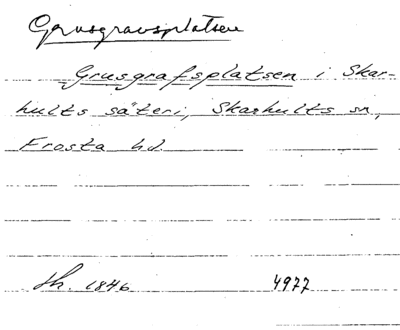 Grusgravsplatsen
Grusgrafsplatsen i Skar-
hults säteri, Skarhults sn,
Frosta hd.
Sh. 1846 4977